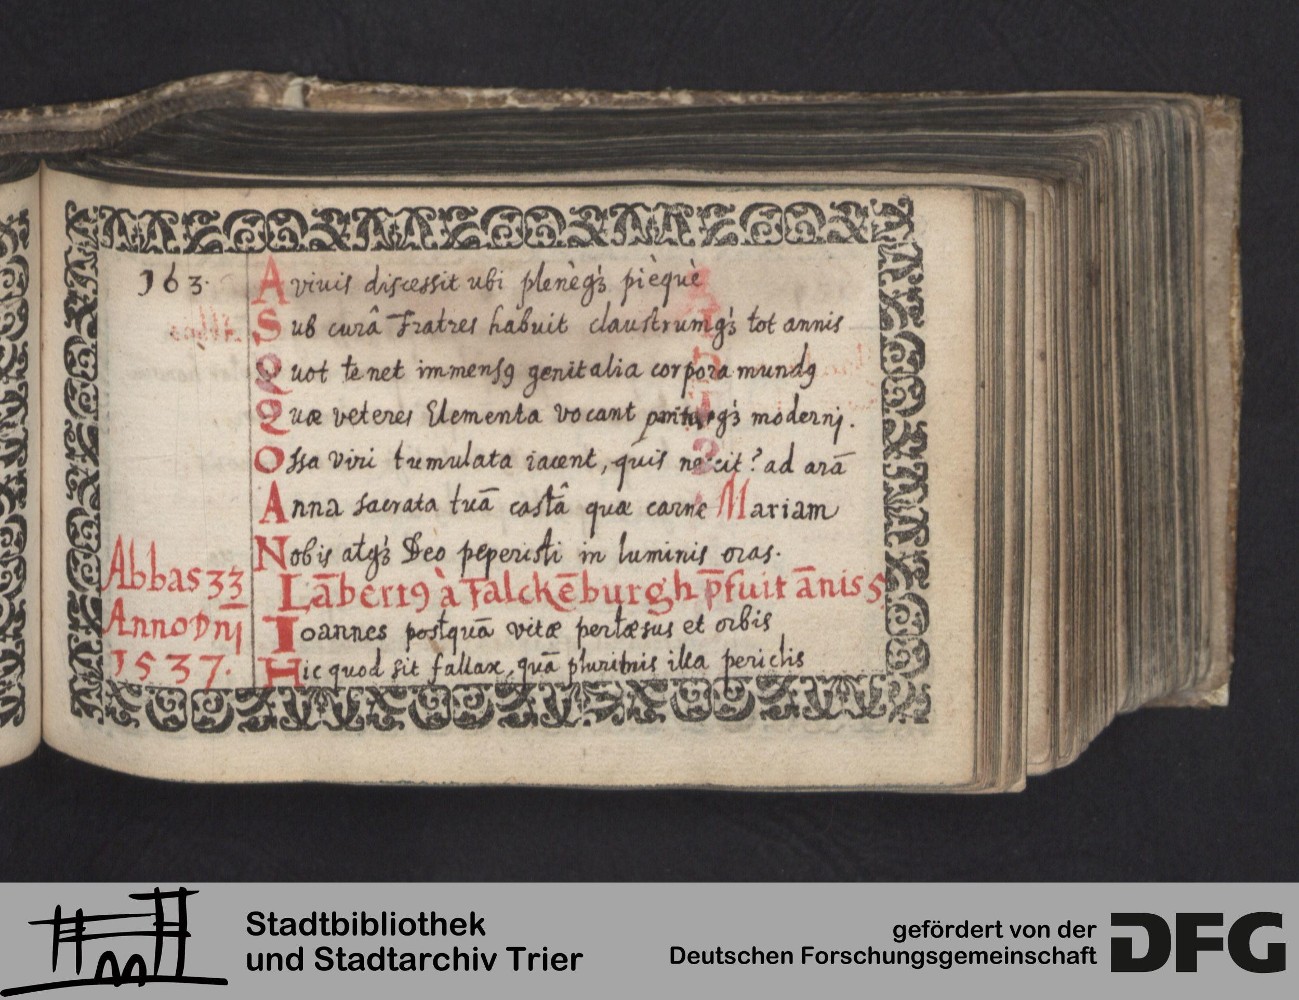 163.
A viuis discessit ubi plenèq́ꝫ pièquè
Sub curâ Fratres habuit claustrumq́ꝫ tot annis
Quot tenet immensꝯ genitalia corpora mundꝯ
Quæ veteres Elementa vocant q́ꝫ modernj.
Ossa viri tumulata iacent, quis nescit? ad arā
Anna sacrata tuā castâ quæ carne Mariam
Nobis atq́ꝫ Deo peperisti in luminis oras.
Abbas 33
Lābertꝯ à Falckēburgh p̄fuit ānis 5
Anno Dnj
Ioannes postquā vitæ pertæsus et orbis
1537.
Hic quod sit fallax, quā plurimis illa periclis
Stadtbibliothek
und Stadtarchiv Trier
gefördert von der
Deutschen Forschungsgemeinschaft
DFG